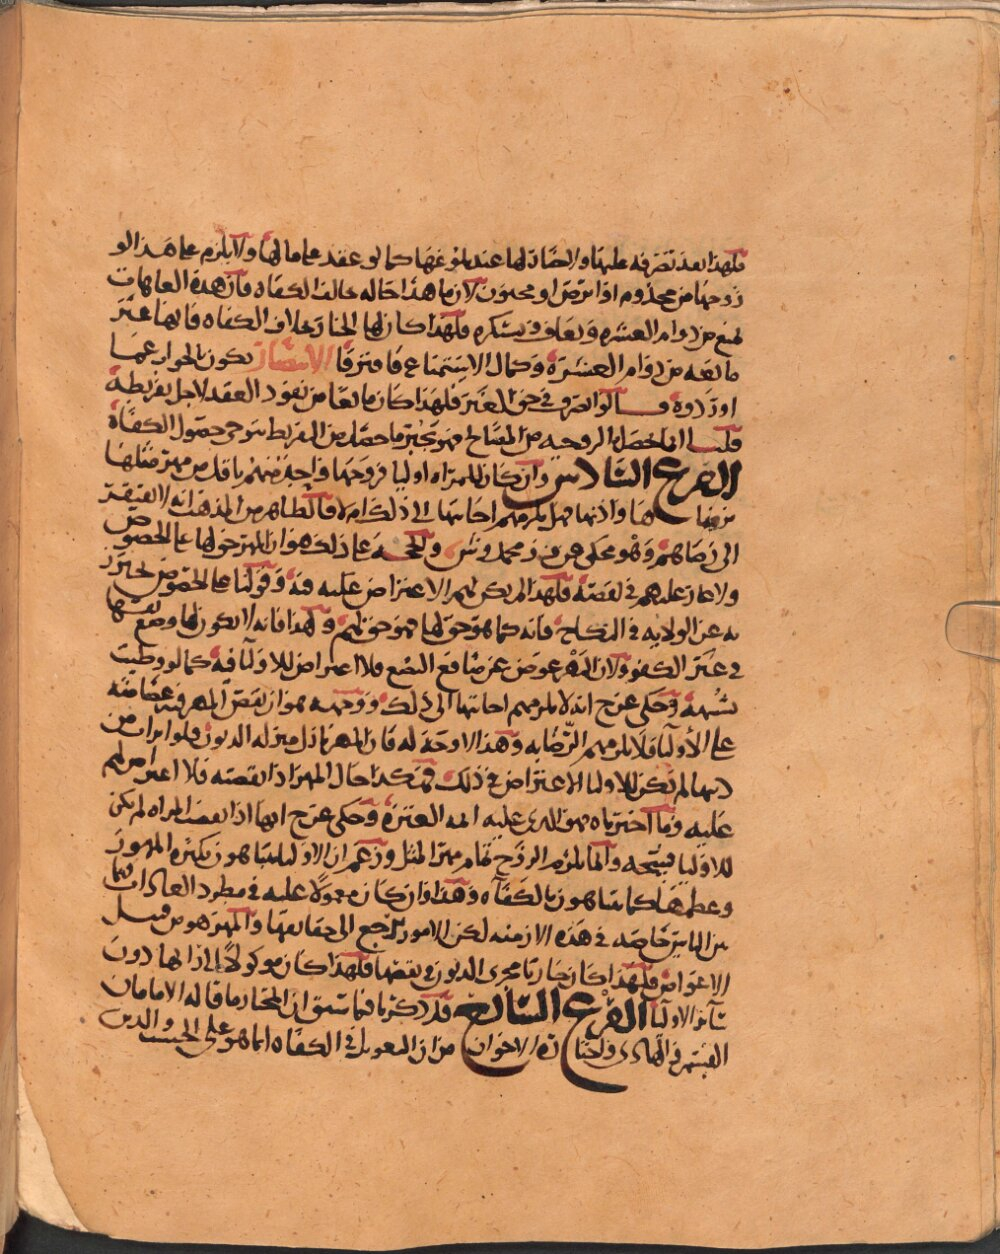 فلهذا نفذ تصرفه عليها ولا خيار لها عند بلوغها كما لو عقد على مالها ولا يلزم على هذا لو
زوجها من مجذوم او ابرص او مجنون لان ما هذا حاله مخالف الكفاه فان هذه العاهات
تمنع من دوام العشره ويعاف ويستكره فلهذا كان لها الخيار بخلاف الكفاه فانها غير
مانعه من دوام العشرة وكمال الاستمتاع فافترقا الانتصار يكون بالجواب عما
اوردوه قالوا تصرف في حق الغير فلهذا كان مانعا من نفوذ العقد لاجل تفريطه
قلنا ان ما حصل للزوجه من المصالح فهو يجبر ما حصل من التفريط سوى حصول الكفاة
الفرع السادس وان كان للمراه اوليا فزوجها واحد منهم باقل من مهر مثلها
برضاها واذنها فهل يلزمهم اجابتها الى ذلك ام لا فالظاهر من المذهب انه لا يفتقر
الى رضاهم وهو محكي عن ف ومحمد وش والحجه على ذلك هو ان المهر حق لها على الخصوص
ولا عار عليهم في نقصه فلهذا لم يكن لهم الاعتراض عليه فيه وقولنا على الخصوص نحترز
به عن الولايه في النكاح فانه كما هو حق لها فهو حق لهم ولهذا فانه لا يكون لها وضع نفسها
في غير الكفو ولان المهر عوض عن منافع البضع فلا اعتراض للاوليا فيه كما لو وطيت
بشبهة وحكى عن ح انه لا يلزمهم اجابتها الى ذلك ووجهه هو ان نقص المهر فيه غضاضه
على الاوليا فلا يلزمهم الرضا به وهذا لا وجه له فان المهر نازل منزله الديون فلو ابرات من
دينها لم يكن للاوليا الاعتراض في ذلك فهكذا حال المهر اذا نقصته فلا اعتراض لهم
عليه وما اخترناه فهو الذي عليه ائمه العترة وحكى عن ح انها اذا نقصت المراه لم يكن
للاوليا فسخه وانما يلزم الزوج تمام مهر المثل وزعم ان الاوليا يتباهون بكثره المهور
وعظمها كما يتباهون بالكفاه وهذا وان كان معمولا عليه في مطرد العادات فيما
بين الناس خاصه في هذه الازمنه لكن الامور ترجع الى حقايقها والمهر هو من قبيل
الاعواض فلهذا كان جاريا مجرى الديون في نقصها فلهذا كان موكولا الى رايها دون
سائر الاوليا الفرع السابع قد ذكرنا فيما سبق ان المختار ما قاله الامامان
القسم والهادي واختاره الاخوان من ان التعويل في الكفاه انما هو على الحسب والدين